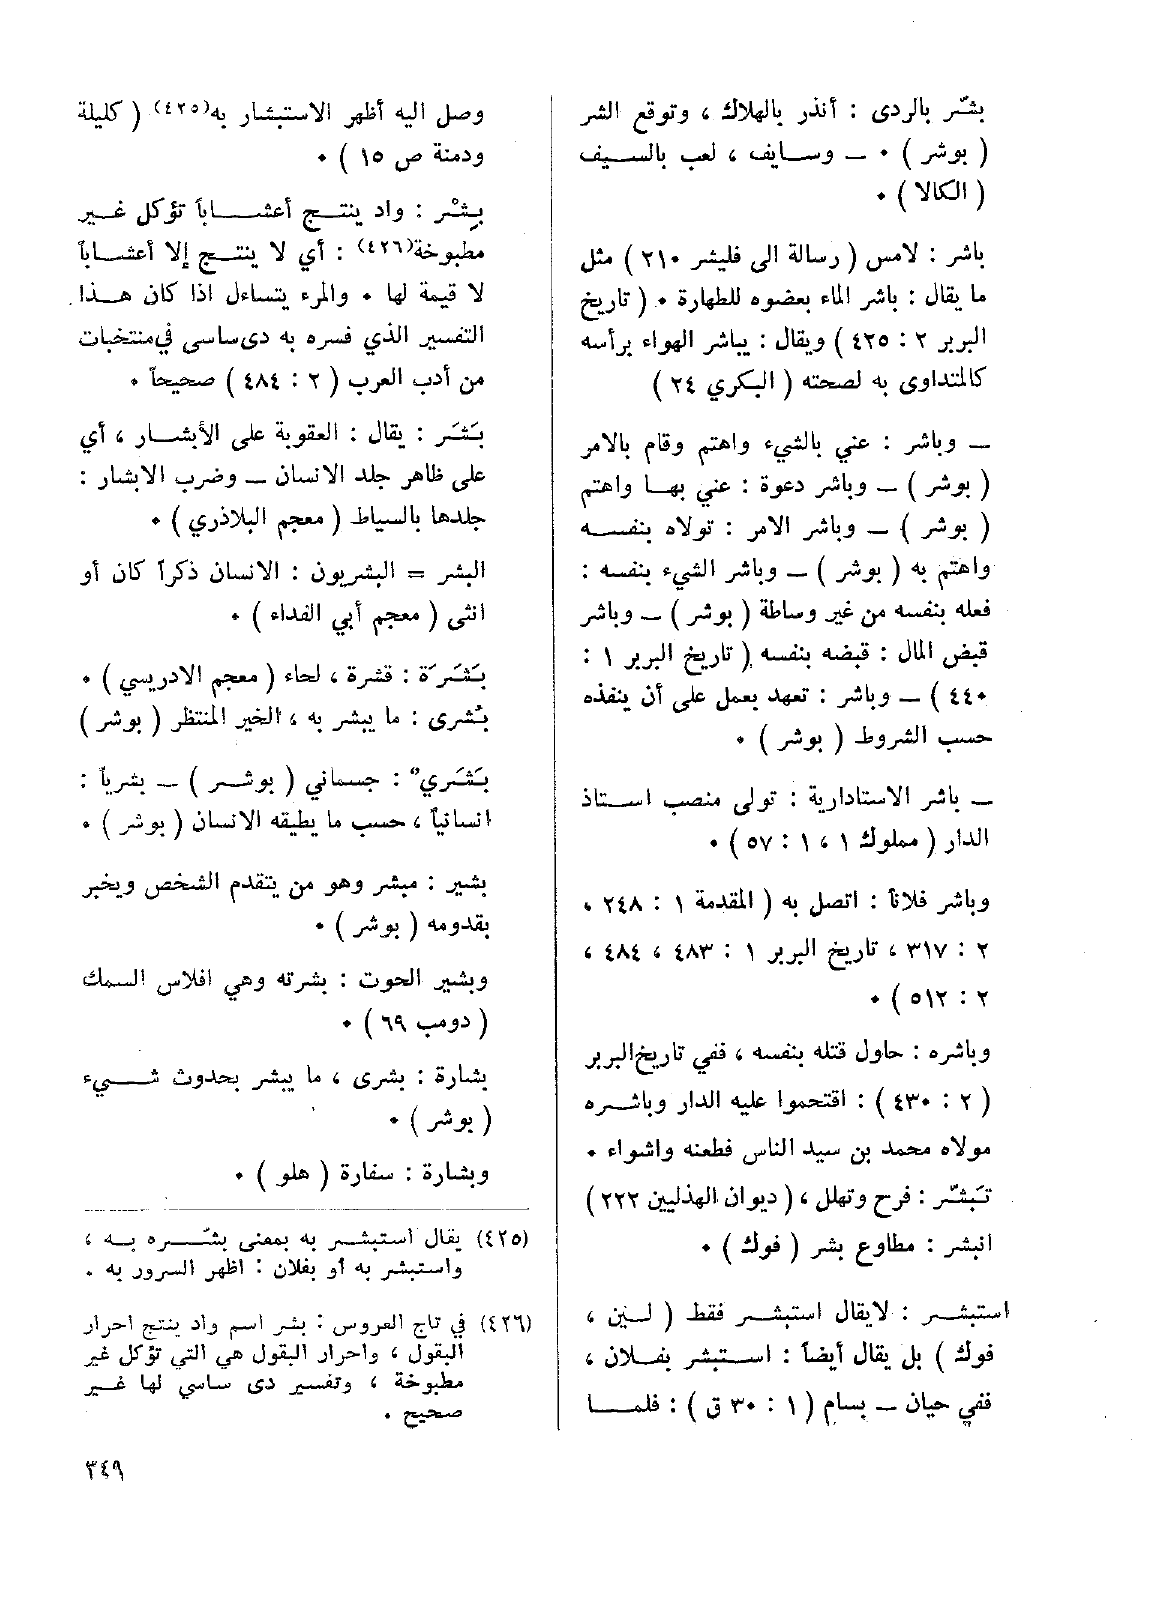 بشّر بالردى : أنذر بالهلاك ، وتوقع الشر
( بوشر ) ٠ ــ وسايف ، لعب بالسيف
( الكالا ) ٠
باشر : لامس ( رسالة الى فليشر ٢١٠ ) مثل
ما يقال : باشر الماء بعضوه للطهارة ٠ ( تاريخ
البربر ٢ : ٤٢٥ ) ويقال : يباشر الهواء برأسه
كالمتداوى به لصحته ( البكري ٢٤ )
ــ وباشر : عني بالشيء واهتم وقام بالامر
( بوشر ) ــ وباشر دعوة : عني بها واهتم
( بوشر ) ــ وباشر الامر : تولاه بنفسه
واهتم به ( بوشر ) ــ وباشر الشيء بنفسه :
فعله بنفسه من غير وساطة ( بوشر ) ــ وباشر
قبض المال : قبضه بنفسه ( تاريخ البربر ١ :
٤٤٠ ) ــ وباشر : تعهد بعمل على أن ينفذه
حسب الشروط ( بوشر ) ٠
ــ باشر الاستادارية : تولى منصب استاذ
الدار ( مملوك ١ ، ١ : ٥٧ ) ٠
وباشر فلاناً : اتصل به ( المقدمة ١ : ٢٤٨ ،
٢ : ٣١٧ ، تاريخ البربر ١ : ٤٨٣ ، ٤٨٤ ،
٢ : ٥١٢ ) ٠
وباشره : حاول قتله بنفسه ، ففي تاريخ البربر
( ٢ : ٤٣٠ ) : اقتحموا عليه الدار وباشره
مولاه محمد بن سيد الناس فطعنه واشواه ٠
تَبَشّر : فرح وتهلل ، ( ديوان الهذليين ٢٢٢ )
انبشر : مطاوع بشر ( فوك ) ٠
استبشر : لا يقال استبشر فقط ( لين ،
فوك ) بل يقال أيضاً : استبشر بفلان ،
ففي حيان ــ بسام ( ١ : ٣٠ ق ) : فلما
وصل اليه أظهر الاستبشار به(٤٢٥) ( كليلة
ودمنة ص ١٥ ) ٠
بِشْر : واد ينتج أعشاباً تؤكل غير
مطبوخة(٤٢٦) : أي لا ينتج إلا أعشاباً
لا قيمة لها ٠ والمرء يتساءل اذا كان هذا
التفسير الذي فسره به دى ساسى في منتخبات
من أدب العرب ( ٢ : ٤٨٤ ) صحيحاً ٠
بَشَر : يقال : العقوبة على الأبشار ، أي
على ظاهر جلد الانسان ــ وضرب الابشار :
جلدها بالسياط ( معجم البلاذري ) ٠
البشر = البشريون : الانسان ذكراً كان أو
انثى ( معجم أبي الفداء ) ٠
بَشَرَة : قشرة ، لحاء ( معجم الادريسي ) ٠
بُشرى : ما يبشر به ، الخير المنتظر ( بوشر )
بَشَري : جسماني ( بوشر ) ــ بشرياً :
انسانياً ، حسب ما يطيقه الانسان ( بوشر ) ٠
بشير : مبشر وهو من يتقدم الشخص ويخبر
بقدومه ( بوشر ) ٠
وبشير الحوت : بشرته وهي افلاس السمك
( دومب ٦٩ ) ٠
بشارة : بشرى ، ما يبشر بحدوث شيء
( بوشر ) ٠
وبشارة : سفارة ( هلو ) ٠
(٤٢٥) يقال استبشر به بمعنى بشّره به ،
واستبشر به أو بفلان : اظهر السرور به .
(٤٢٦) في تاج العروس : بشر اسم واد ينتج احرار
البقول ، واحرار البقول هي التي تؤكل غير
مطبوخة ، وتفسير دى ساسي لها غير
صحيح .
٣٤٩